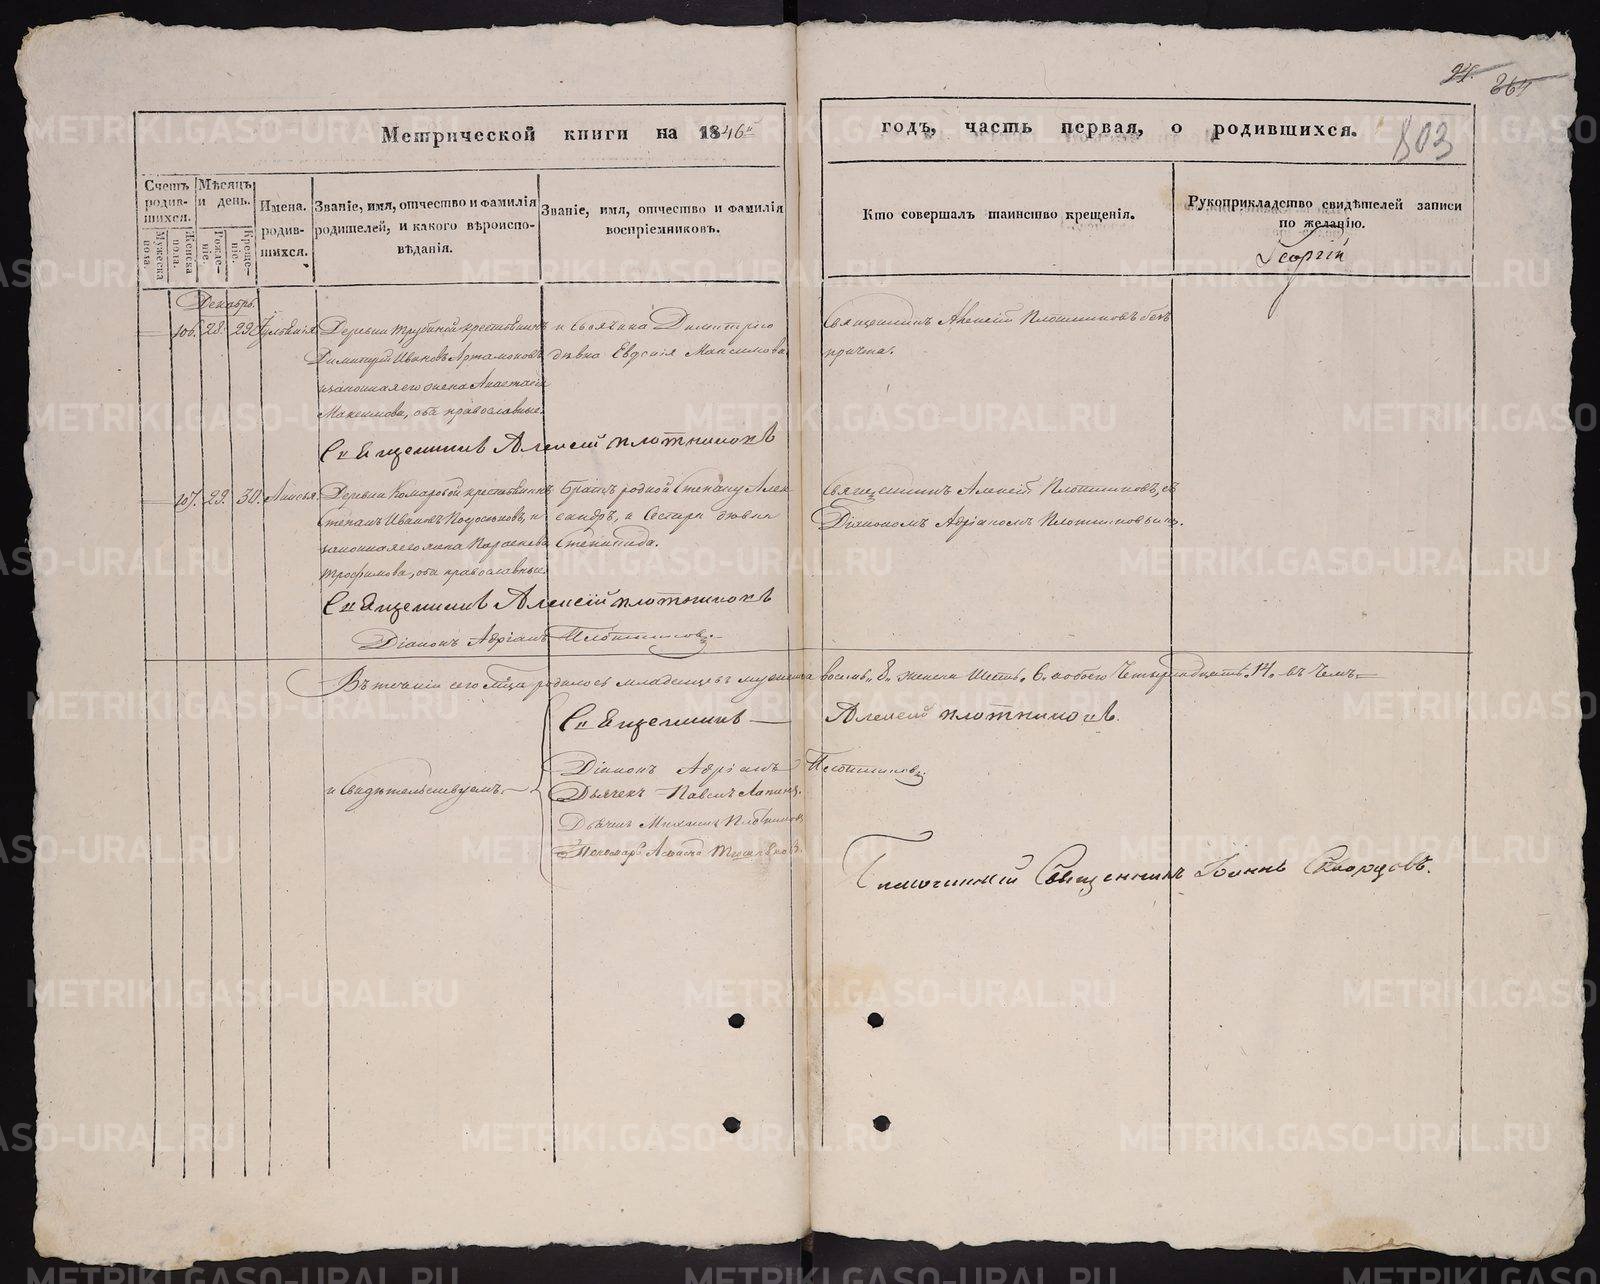 94. 364
Метрической книги на 1846й годъ, часть первая, о родившихся. 803
Счетъ родившихся.
Мужеска пола.
Женска пола.
Мѣсяцъ и день.
Рожденіе.
Крещеніе.
Имена родившихся.
Званіе, имя, отчество и фамилія родителей, и какого вѣроисповѣданія.
Званіе, имя, отчество и фамилія воспріемниковъ.
Кто совершалъ таинство крещенія.
Рукоприкладство свидѣтелей записи по желанію.
Георгій
Декабрь.
106. 28. 29. Деревни Трубиной крестьянинъ
Димитрій Ивановъ Артамоновъ
и законная его жена Анастасія
Максимова, оба православные.
и Своячина Димитрію
дѣвка Евдокія Максимова
Священникъ Алексій Плотниковъ безъ
причта.
Священникъ Алексій Плотниковъ
107. 29. 30. Анисья. Деревни Комаровой крестьянинъ
Степанъ Ивановъ и
законная его жена Параскева
Трофимова, оба православные.
Братъ родной Степану Алек
сандръ, и Сестра дѣвка
Степанида.
Священникъ Алексій Плотниковъ, съ
Діакономъ Адріаномъ Плотниковымъ.
Священникъ Алексій Плотниковъ
Діаконъ Адріанъ Плотниковъ.
Въ теченіи сего м҃ца родилось младенцевъ мужеска восемь „8„ женска Шесть. 6. а обоего Четырнадцать. 14. въ Чемъ
и Свидѣтельствуемъ.
Священникъ Алексій Плотниковъ.
Діаконъ Адріанъ Плотниковъ.
Дьячекъ Павелъ
Дьячекъ Михаилъ Плотниковъ
Пономарь
Благочинный Священникъ Іоаннъ Скворцовъ.
METRIKI.GASO-URAL.RU